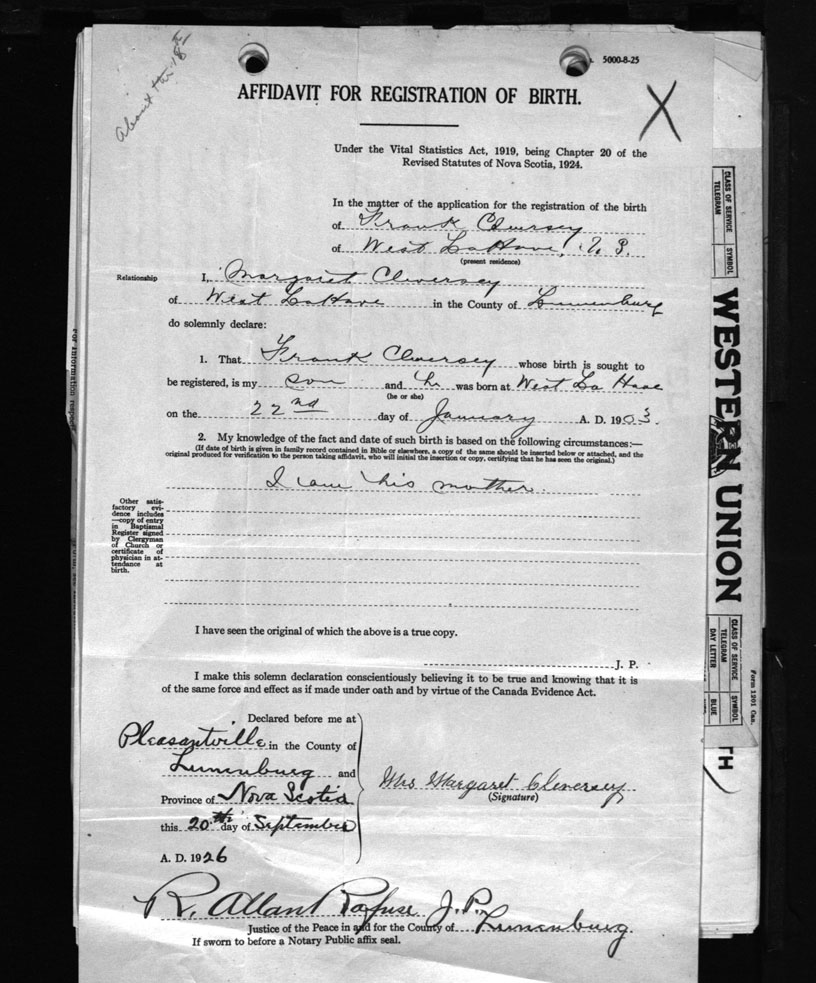 About the 18th
5000-8-25
AFFIDAVIT FOR REGISTRATION OF BIRTH.
X
Under the Vital Statistics Act, 1919, being Chapter 20 of the
Revised Statutes of Nova Scotia, 1924.
In the matter of the application for the registration of the birth
of Frank Cleversey
of West LaHave, N. S.
(present residence)
Relationship
I, Margaret Cleversey
of West LaHave in the County of Lunenburg
do solemnly declare:
1. That Frank Cleversey whose birth is sought to
be registered, is my son and he was born at West La Have
(he or she)
on the 22nd day of January A. D. 1903.
2. My knowledge of the fact and date of such birth is based on the following circumstances:—
(If date of birth is given in family record contained in Bible or elsewhere, a copy of the same should be inserted below or attached, and the
original produced for verification to the person taking affidavit, who will initial the insertion or copy, certifying that he has seen the original.)
I am his mother
Other satis-
factory evi-
dence includes
—copy of entry
in Baptismal
Register signed
by Clergyman
of Church or
certificate of
physician in at-
tendance at
birth.
I have seen the original of which the above is a true copy.
J. P.
I make this solemn declaration conscientiously believing it to be true and knowing that it is
of the same force and effect as if made under oath and by virtue of the Canada Evidence Act.
Declared before me at
Pleasantville in the County of
Lunenburg and
Province of Nova Scotia
this 20th day of September
A. D. 1926
Mrs Margaret Cleversey
(Signature)
R. Allan Rafuse J.P.
Justice of the Peace in and for the County of Lunenburg.
If sworn to before a Notary Public affix seal.
CLASS OF SERVICE SYMBOL
TELEGRAM
WESTERN UNION
CLASS OF SERVICE SYMBOL
TELEGRAM
DAY LETTER BLUE
Form 1201 Can.
TH
For information